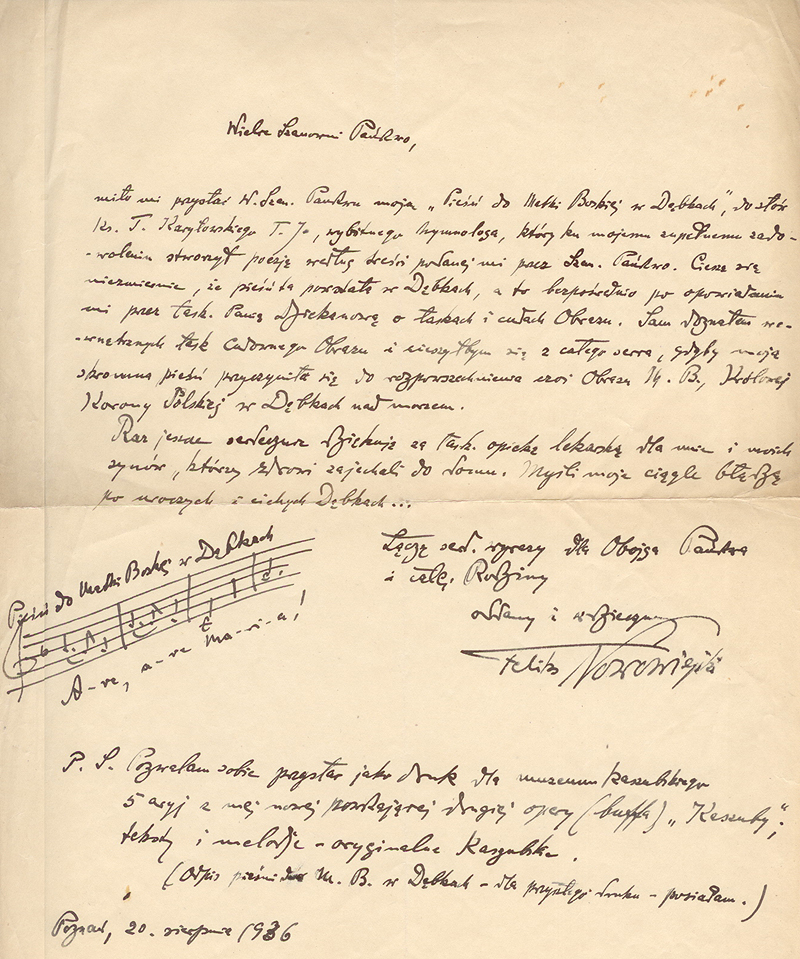 Wielce Szanowni Państwo,
miło mi przysłać W. Szan. Państwu moją „Pieśń do Matki Boskiej w Dębkach", do słów
ks. T. Karyłowskiego T. J., wybitnego hymnologa, który ku mojemu zupełnemu zado-
-woleniu stworzył poezję według treści podanej mi przez Szan. Państwo. Cieszę się
niezmiernie, że pieśń ta powstała w Dębkach, a to bezpośrednio po opowiadaniu
mi przez łask. Panią o łaskach i cudach Obrazu. Sam doznałem we-
-wnętrznych łask cudownego Obrazu i cieszyłbym się z całego serca, gdyby moja
skromna pieśń przyczyniła się do rozpowszechnienia czci Obrazu M. B., Królowej
Korony Polskiej w Dębkach nad morzem.
Raz jeszcze serdecznie dziękuję za łask. opiekę lekarską dla mnie i moich
synów, którzy zdrowi zajechali do domu. Myśli moje ciągle błądzą
po uroczych i cichych Dębkach...
Łączę serd. wyrazy dla Obojga Państwa
i całej Rodziny
oddany i wdzięczny
Feliks Nowowiejski
Pieśń do Matki Boskiej w Dębkach
A-ve, a-ve Ma-ri-a!
P. S. Pozwalam sobie przysłać jako druk dla muzeum kaszubskiego
5 aryj z mej nowej powstającej drugiej opery (buffa) „Kaszuby";
teksty i melodje - oryginalne Kaszubskie.
(Odpis pieśni do M. B. w Dębkach - dla przyszłego druku - posiadam.)
Poznań, 20. sierpnia 1936